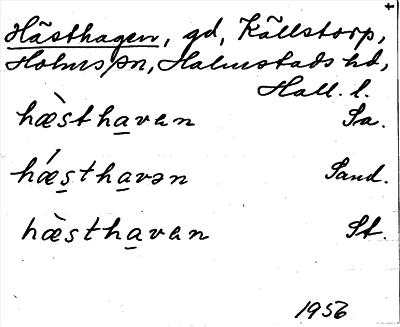 Hästhagen, gd, Källstorp,
Holms sn, Halmstads hd,
Hall. l.
hæ̀stha̲van Sa.
hǽs̲tha̲vən Sand.
hæ̀stha̲van St.
1956